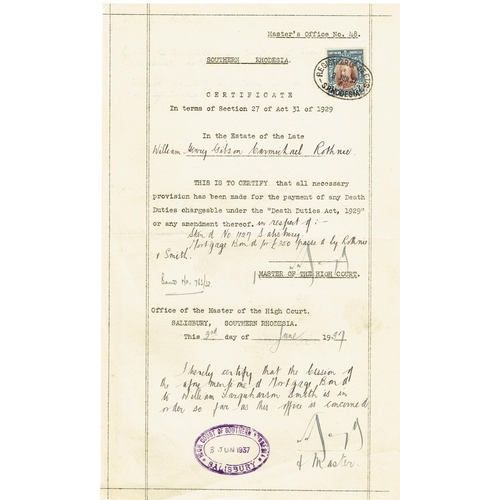 Master's Office No. 48.
SOUTHERN RHODESIA.
CERTIFICATE
In terms of Section 27 of Act 31 of 1929
In the Estate of the Late
William Henry Gibson Carmichael Rothnie
THIS IS TO CERTIFY that all necessary
provision has been made for the payment of any Death
Duties chargeable under the "Death Duties Act, 1929"
or any amendment thereof. in respect of:-
Stand No 1127 Salisbury
Mortgage Bond for £350 passed by Rothnie
& Smith.
MASTER OF THE HIGH COURT.
Bond No.
Office of the Master of the High Court.
SALISBURY, SOUTHERN RHODESIA.
This 3rd day of June 1937
I hereby certify that the Cession of
the afore mentioned Mortgage Bond
to William Farquharson Smith is in
order so far as this office is concerned
HIGH COURT OF SOUTHERN RHODESIA
3 JUN 1937
SALISBURY
Master.